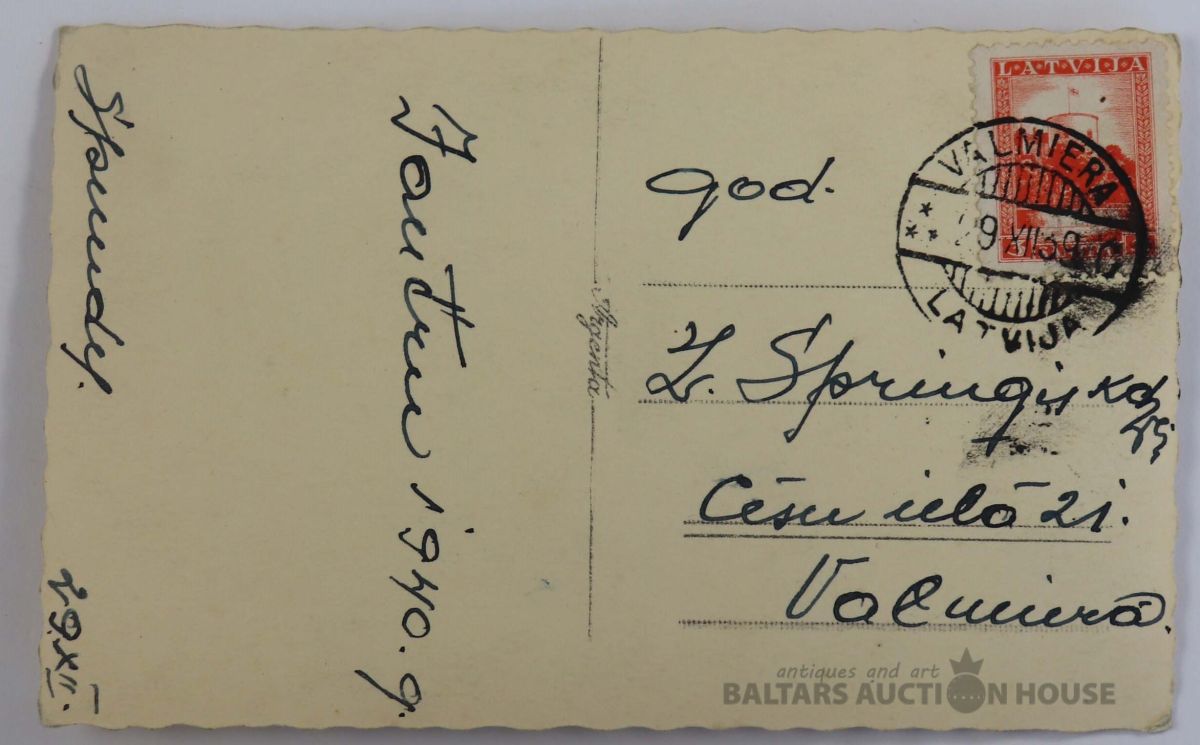 Jautru 1940. g.
29. XII.
Agenta
LATVIJA
VALMIERA
29 XII 39
LATVIJA
god.
Z. Springis kdz
Cēsu ielā 21.
Valmierā.
antiques and art
BALTARS AUCTION HOUSE